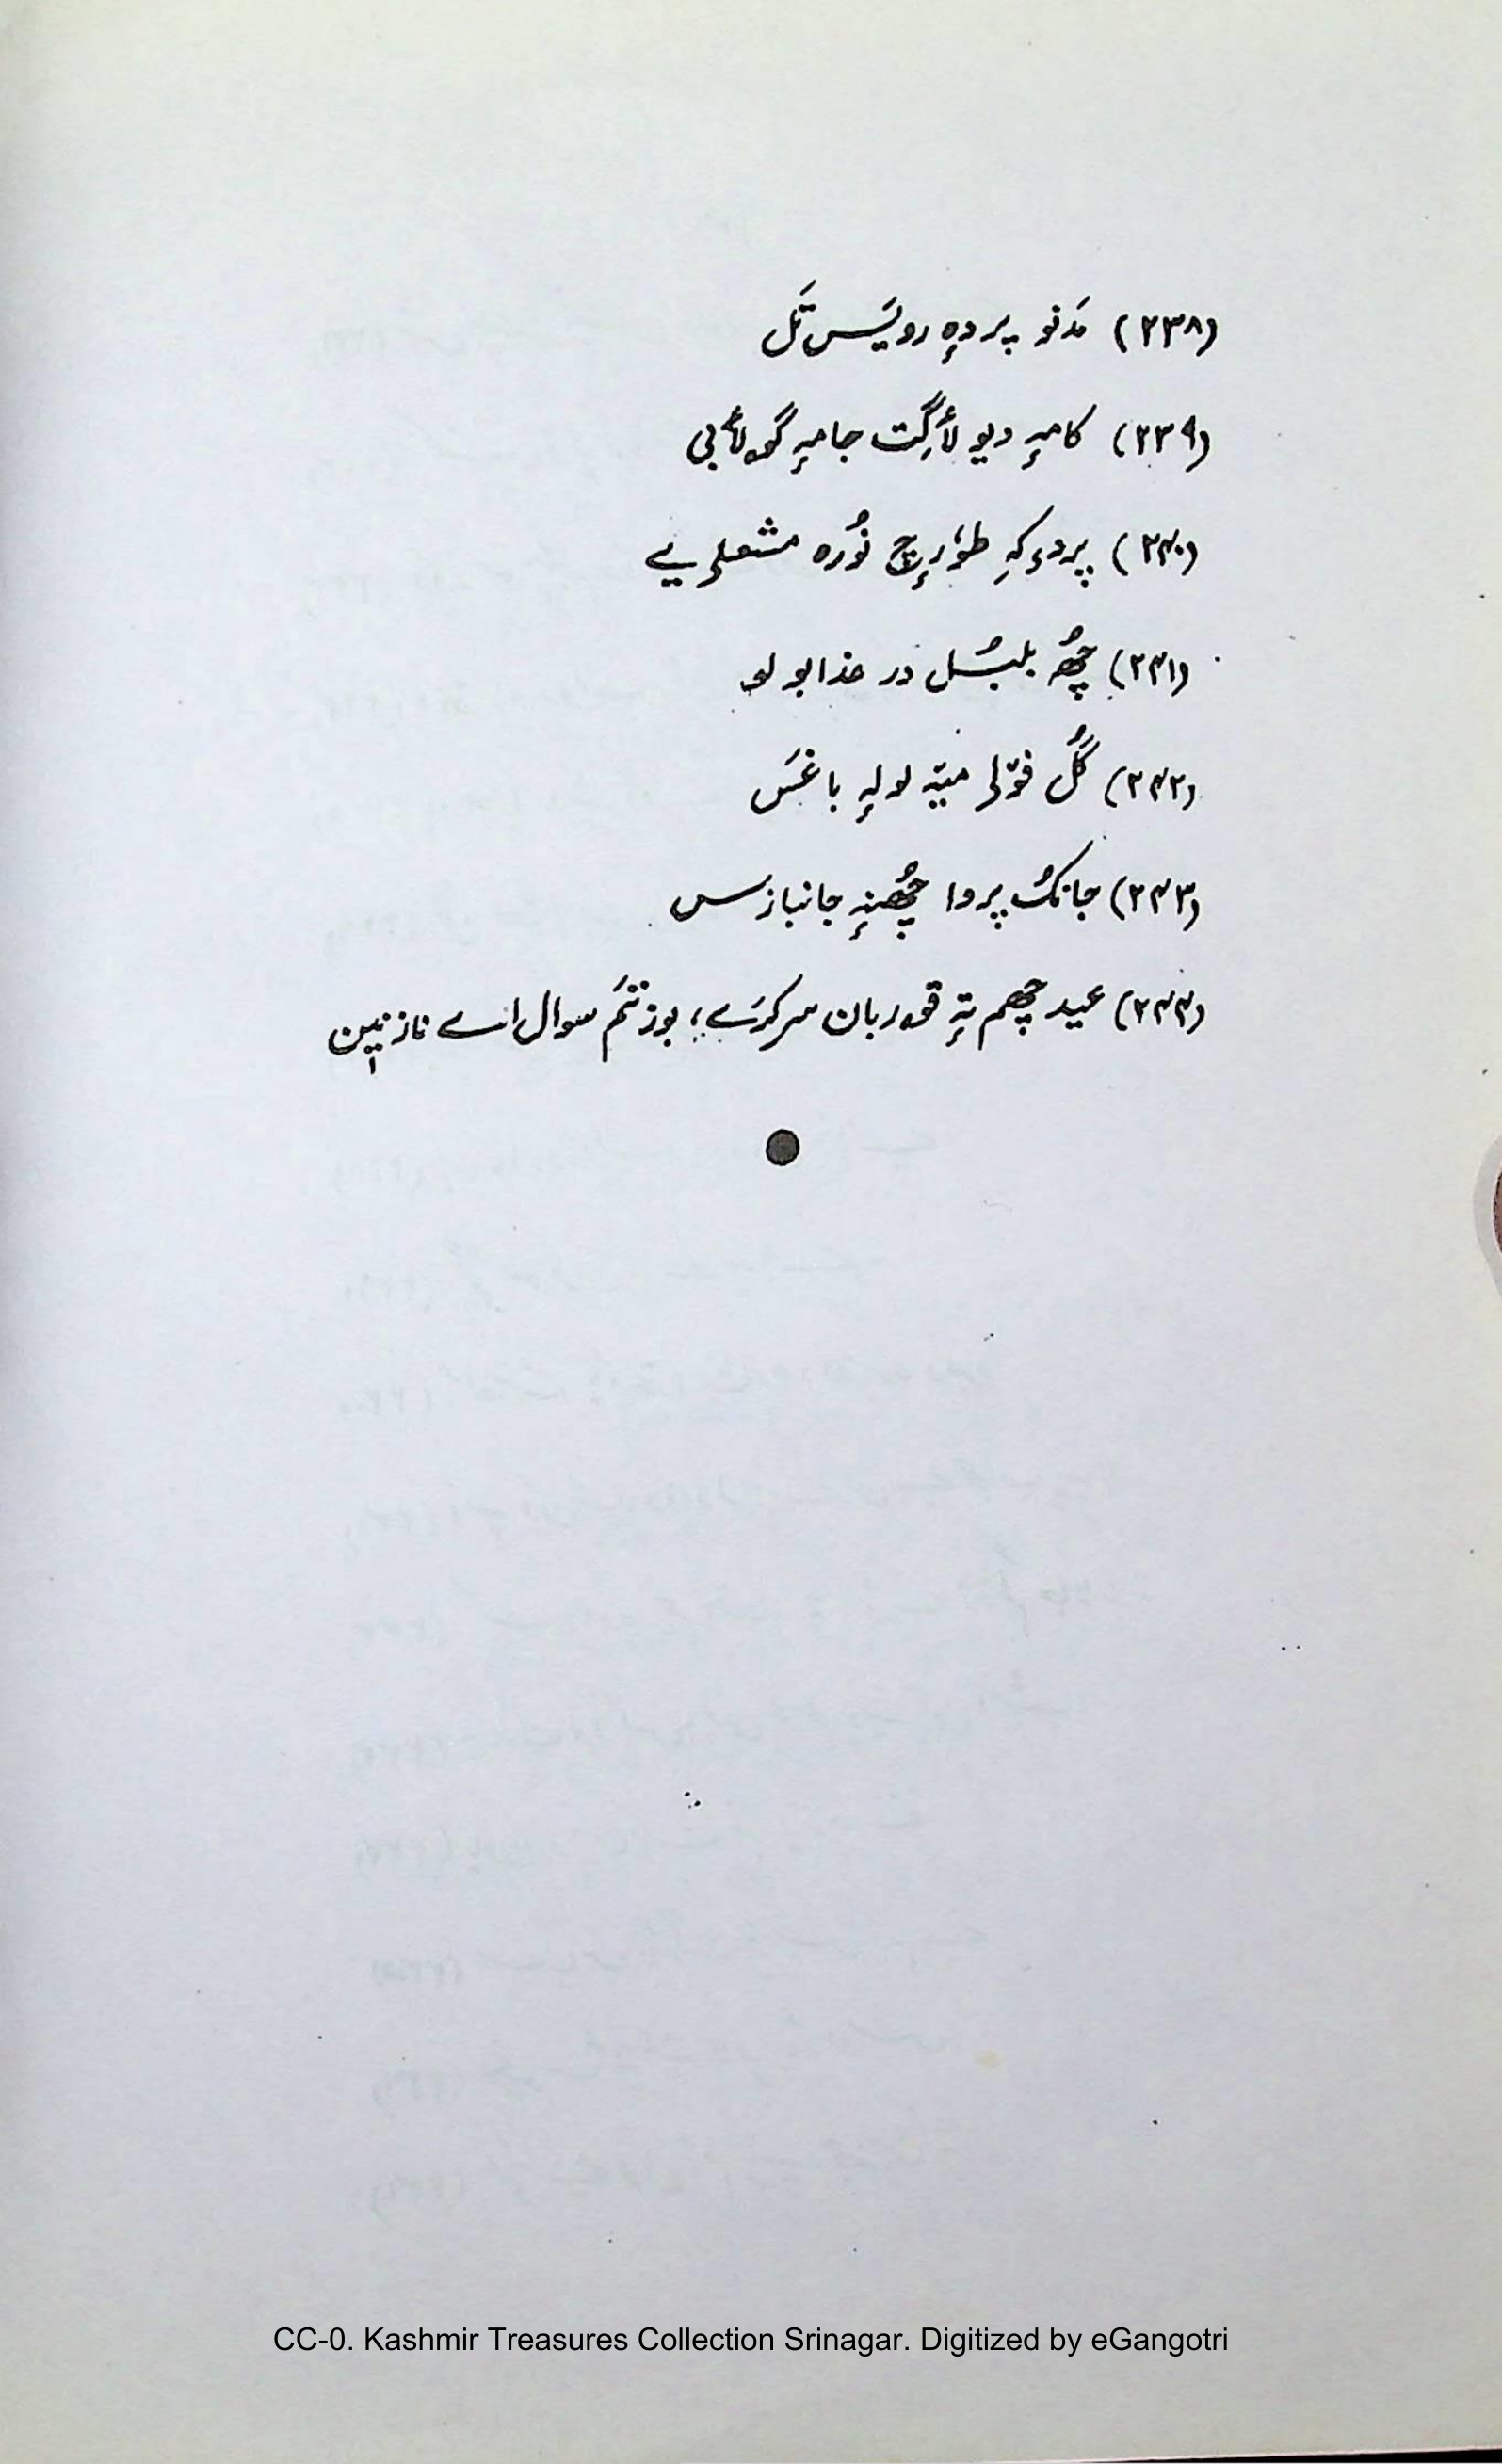 (۲۳۸) مَدنو پردہٕ رویَس تَل
(۲۳۹) کامہٕ دیو لٲگِت جامہٕ گولٲبی
(۲۴۰) پردءکہِ طوٗرٕچ نُورہ مشعلہٕ یے
(۲۴۱) چھُہ بلبُل در عذابو لو
(۲۴۲) گُل فوٚلۍ میٚتہِ لولہٕ باغسَ
(۲۴۳) جانکُ پروا چھُنہٕ جانبازس
(۲۴۴) عید چھم تہٕ قوربان سر کرَے؛ بوزتَم سوال اے نازنیٖن
CC-0. Kashmir Treasures Collection Srinagar. Digitized by eGangotri